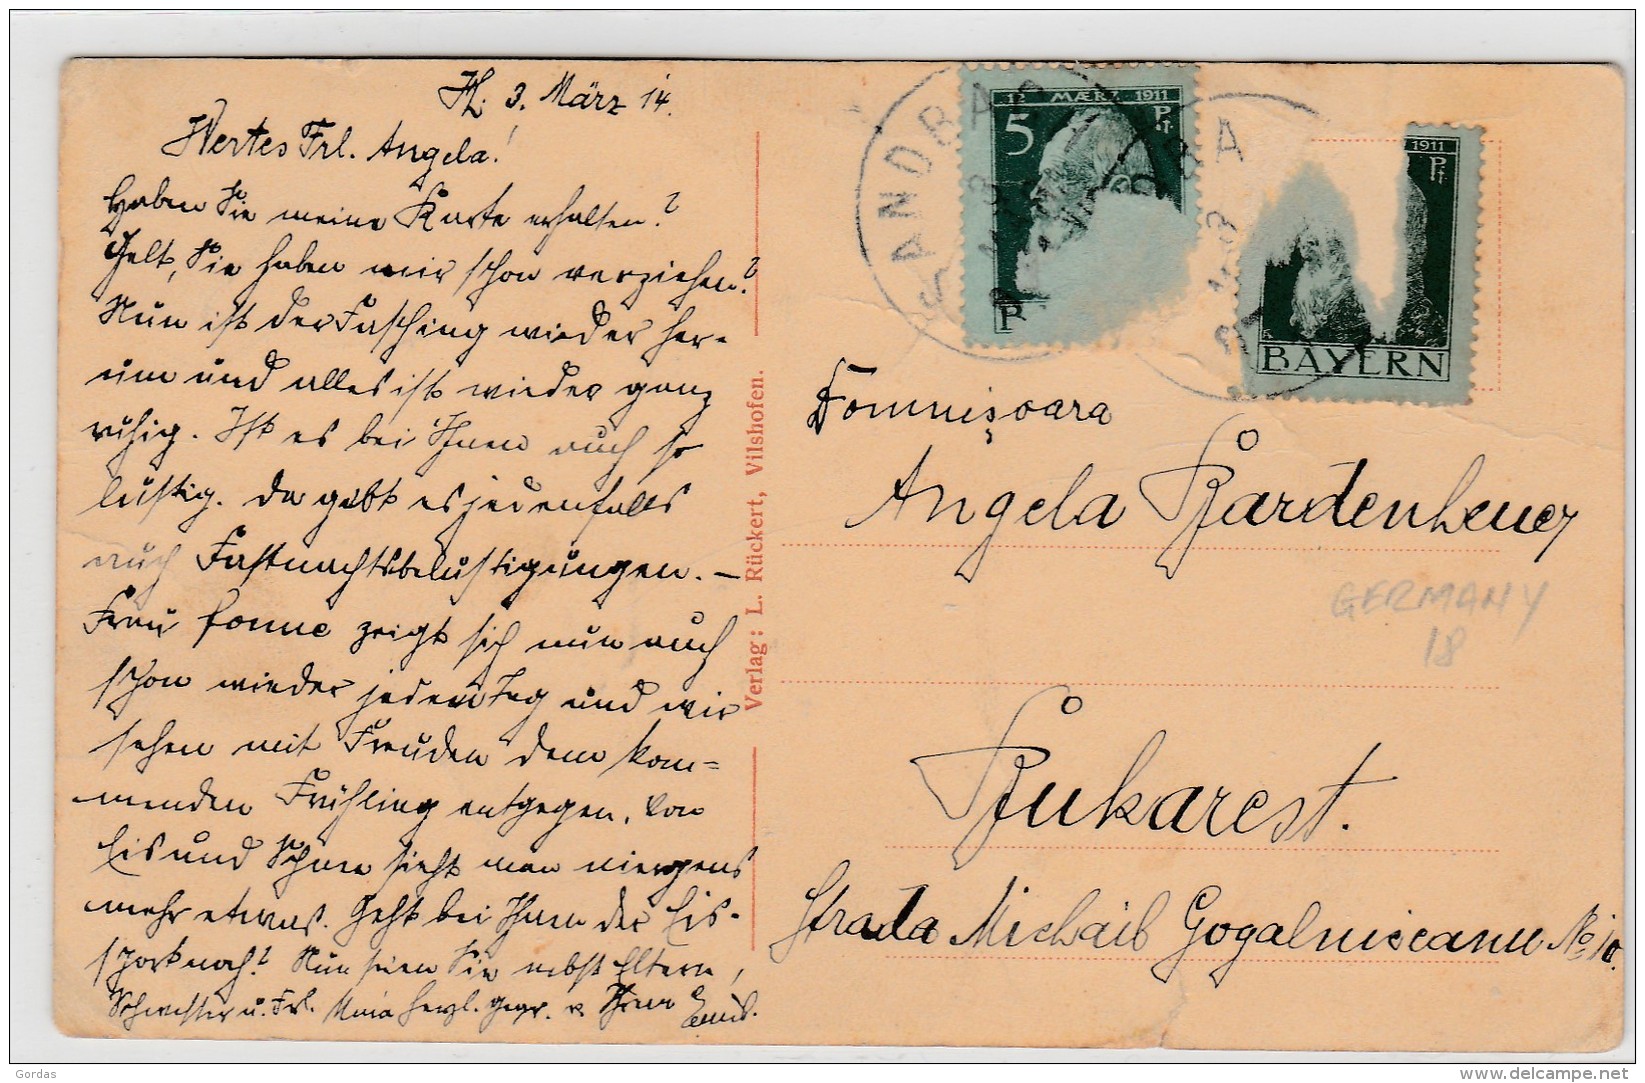 H. 3. März 14.
Wertes Frl. Angela!
Haben Sie meine Karte erhalten?
Gelt, Sie haben mir schon verziehen?
Nun ist der Fasching wieder her-
um und alles ist wieder ganz
ruhig. Ist es bei Ihnen auch so
lustig. Da gibt es jedenfalls
auch Fastnachtsbelustigungen. –
Frau Sonne zeigt sich nun auch
schon wieder jeden Tag und wir
sehen mit Freuden dem kom=
menden Frühling entgegen. Von
Eis und Schnee sieht man nirgens
mehr etwas. Geht bei Ihnen der Eis-
sport noch? Nun seien Sie nebst Eltern,
Schwester u. Frl. Maria herzl. gegr. v. Ihrer
Verlag: L. Rückert, Vilshofen.
SANDBA
3
12 MÆRZ 1911
5 Pf
B
BA
3
1911
Pf
5
BAYERN
Domnişoara
Angela Bardenheuer
GERMANY
18
Bukarest.
Strada Michail Gogalniceanu No 10.
Gordas
delcampe.net